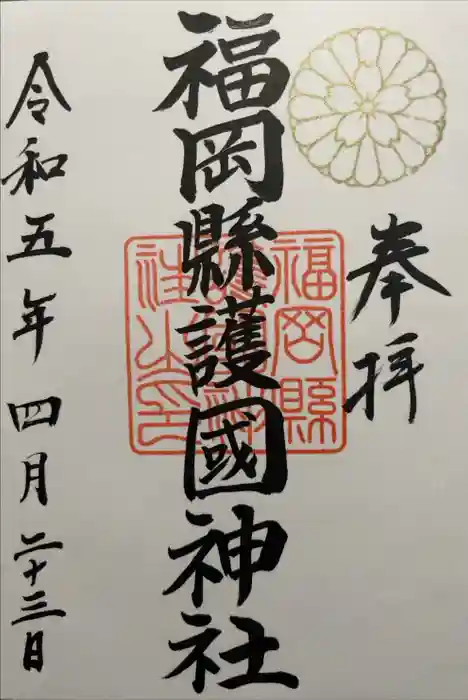 奉拝
福岡縣護國神社
令和五年四月二十三日
福岡縣